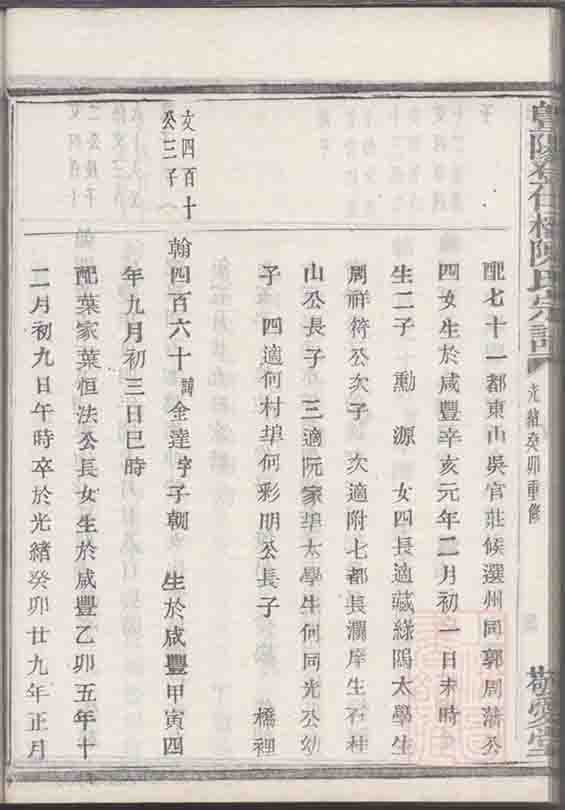 暨陽橋陳氏宗譜
光緒癸卯重修
敬愛堂
配七十一都東山吳官莊候選州同郭周藩公
四女生於咸豐辛亥元年二月初一日未時
生二子 勳 源 女四長適藏綠隖太學生
周祥符公次子 次適附七都長瀾庠生石桂
山公長子 三適阮家埠太學生何同光公幼
子 四適何村埠何彩明公長子 橋裡
文四百十
公三子
翰四百六十諱金達字子朝 生於咸豐甲寅四
年九月初三日巳時
配葉家葉恒法公長女生於咸豐乙卯五年十
二月初九日午時卒於光緒癸卯廿九年正月